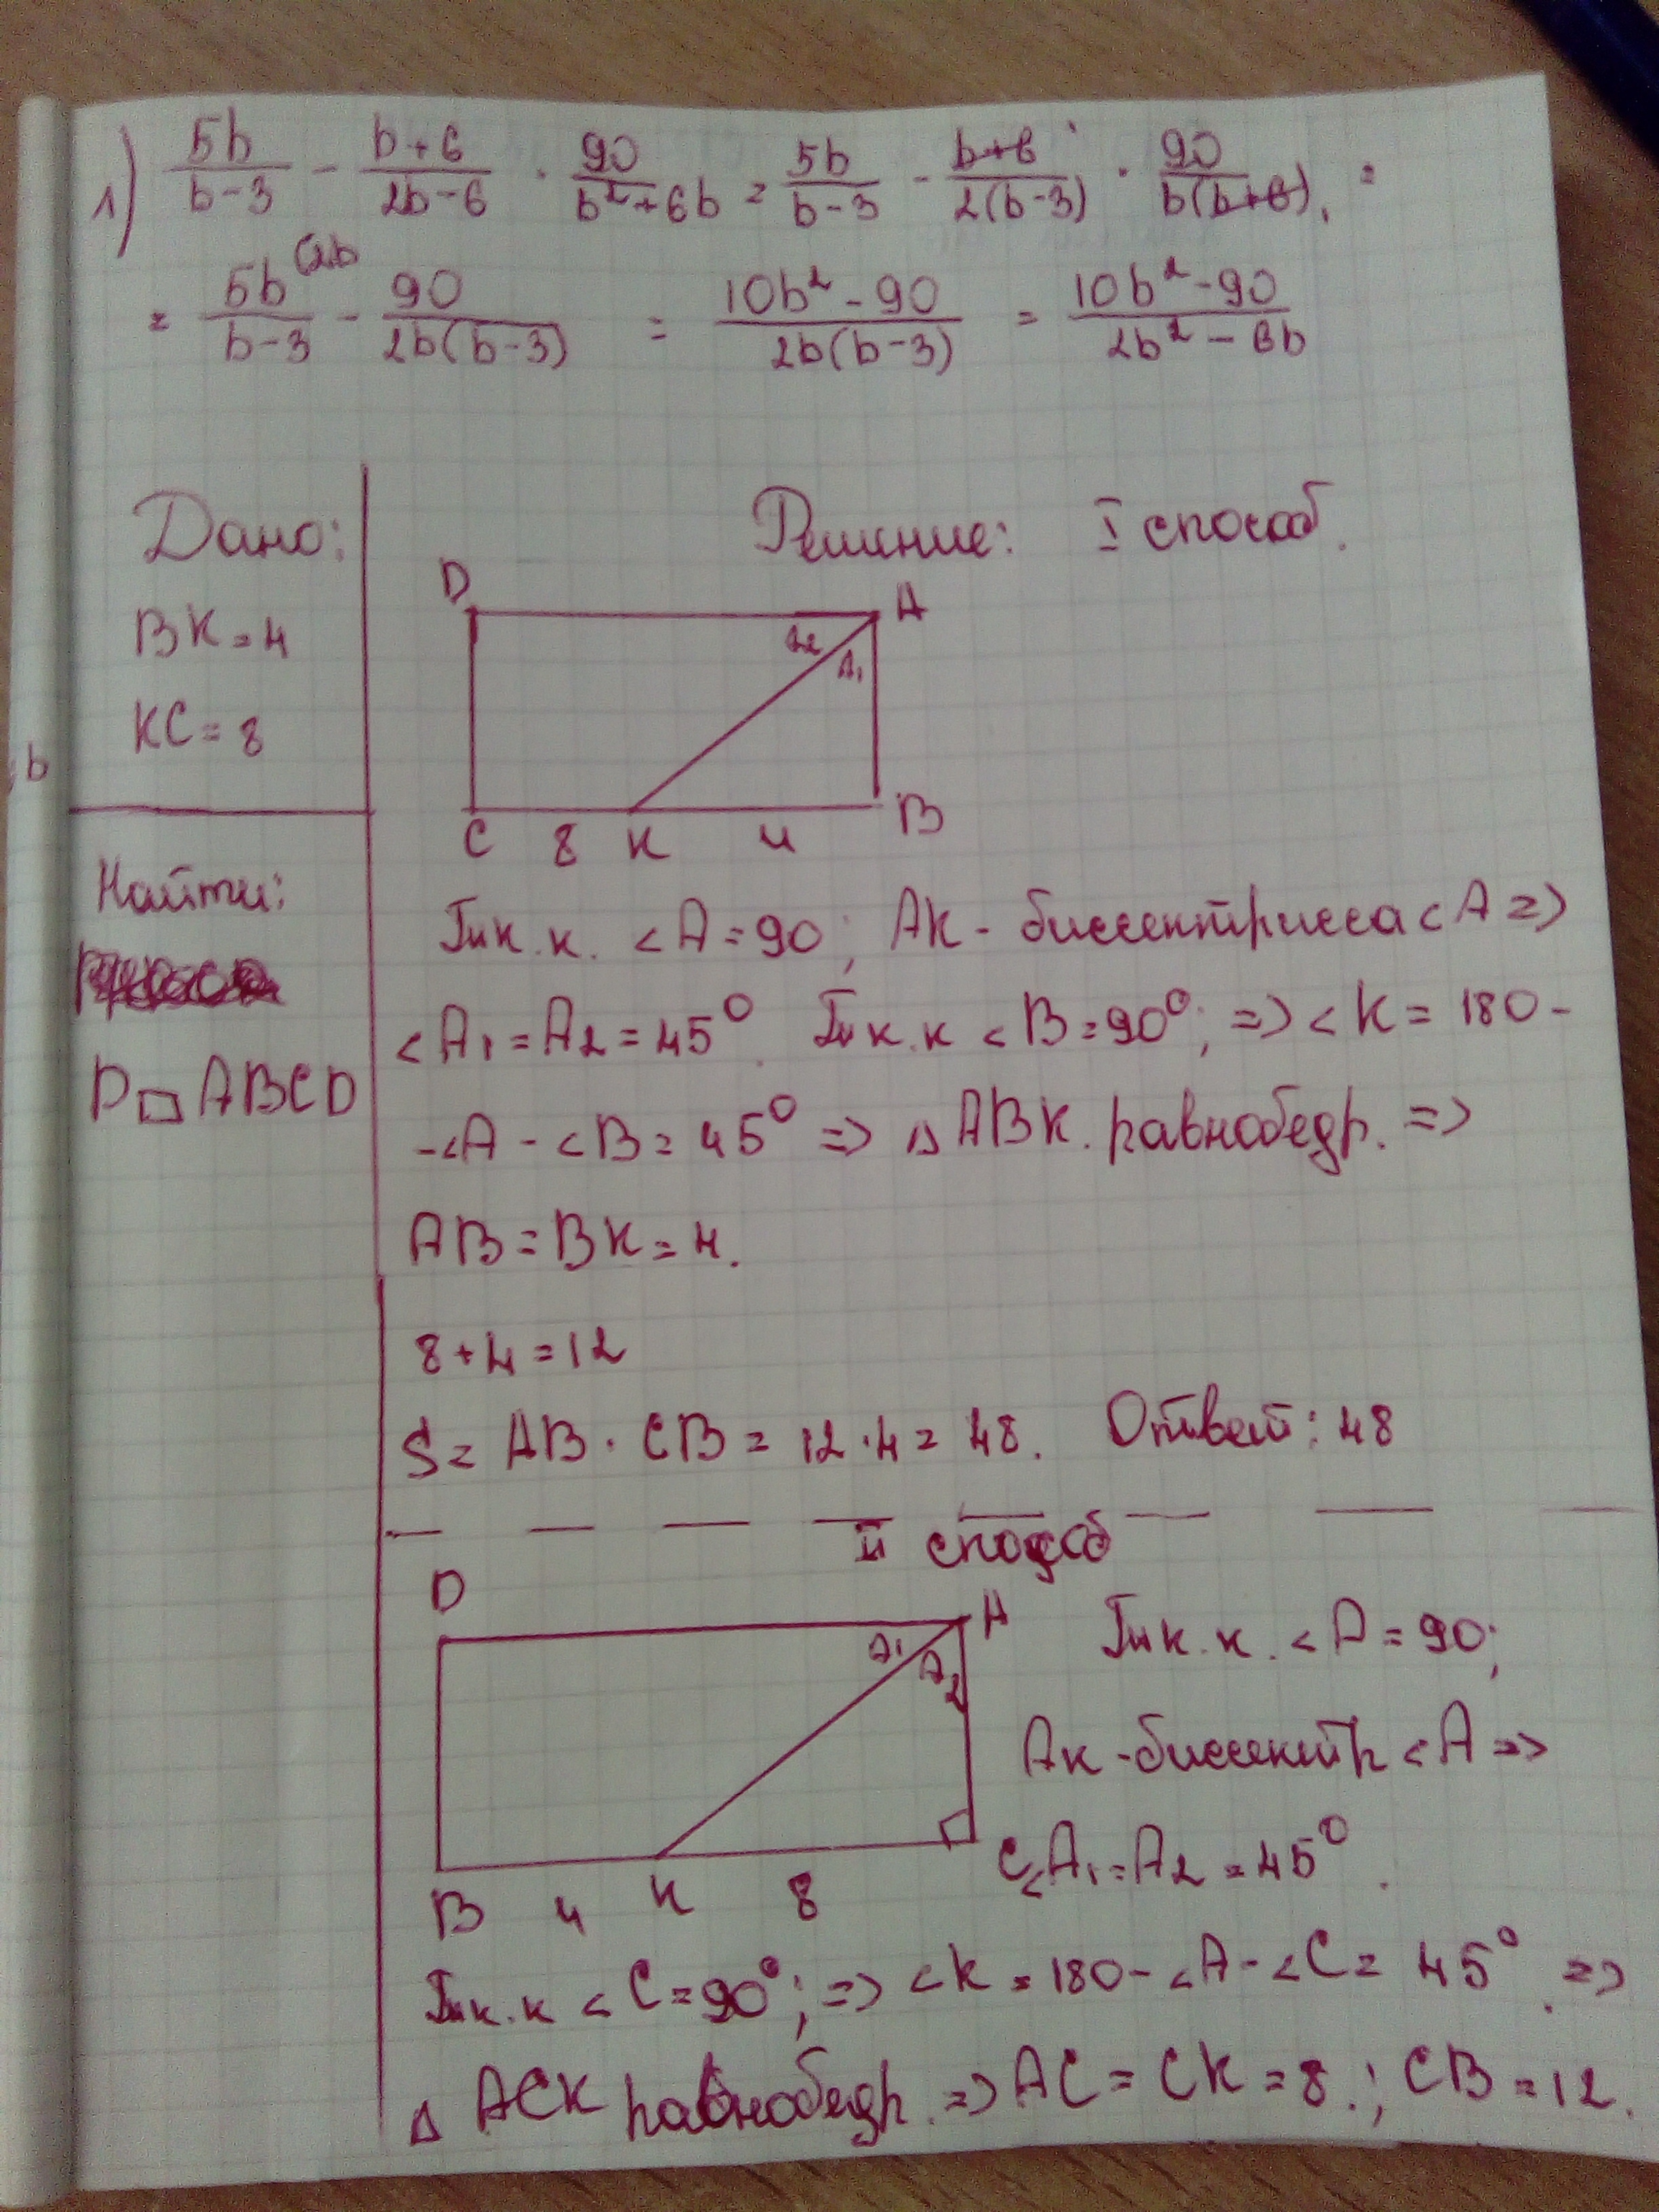 1) 5b/(b-3) - (b+6)/(2b-6) · 90/(b²+6b) = 5b/(b-3) - (b+6)/(2(b-3)) · 90/(b(b+6)) =
= 5b (2b / (b-3) - 90/(2b(b-3)) = (10b²-90)/(2b(b-3)) = (10b²-90)/(2b²-6b)
Дано:
BK=4
KC=8
b
Найти:
P▱ABCD
Решение: I способ.
D A
A2 A1
C 8 K 4 B
Тк.к. <A=90; AK- биссектрисса <A =>
<A1=A2=45°. Тк.к <B=90°; => <K=180-
-<A-<B=45° => △ABK. равнобедр. =>
AB=BK=4.
8+4=12
S=AB·CB=12·4=48. Ответ: 48
II способ
D A
A1 A2
B 4 K 8 C
Тк.к. <A=90;
AK-биссектр <A =>
<A1=A2=45°.
Тк.к <C=90°; => <K=180-<A-<C=45°. =>
△ ACK равнобедр. => AC=CK=8.; CB=12.